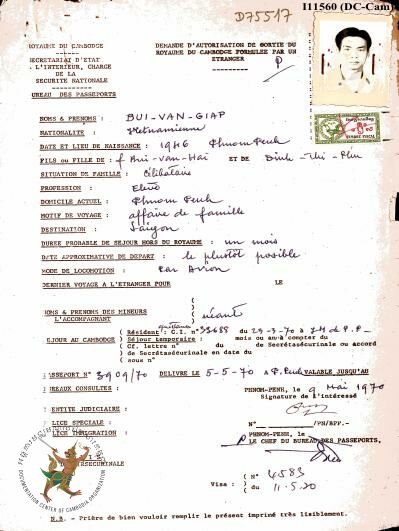 I11560 (DC-Cam)
D75517
ROYAUME DU CAMBODGE
SECRETARIAT D'ETAT
A L'INTERIEUR, CHARGE
DE LA
SECURITE NATIONALE
BUREAU DES PASSEPORTS
DEMANDE D'AUTORISATION DE SORTIE DU
ROYAUME DU CAMBODGE FORMULEE PAR UN
ETRANGER
P
NOMS & PRENOMS : BUI-VAN-GIAP
NATIONALITE : Vietnamienne
DATE ET LIEU DE NAISSANCE : 1946 Phnom Penh
FILS ou FILLE DE : f Bui-Van-Hai ET DE Dinh-Thi-Phu
SITUATION DE FAMILLE : Célibataire
PROFESSION : Elève
DOMICILE ACTUEL : Phnom Penh
MOTIF DE VOYAGE : affaire de famille
DESTINATION : Saigon
DUREE PROBABLE DE SEJOUR HORS DU ROYAUME : un mois
DATE APPROXIMATIVE DE DEPART : le plutôt possible
MODE DE LOCOMOTION : Par Avion
DERNIER VOYAGE A L'ETRANGER POUR LE
NOMS & PRENOMS DES MINEURS
L'ACCOMPAGNANT : néant
SEJOUR AU CAMBODGE
Résident : C.I. n° 33688 du 29-3-70 à
Séjour temporaire : mois ou an à compter du
Cf. lettre n° du de Secrétsécurinale ou accord
de Secrétsécurinale en date du
sous n°
PASSEPORT N° 3909/70 DELIVRE LE 5-5-70 A P.Penh VALABLE JUSQU'AU
BUREAUX CONSULTES :
PHNOM-PENH, le 9 Mai 1970
Signature de l'intéressé
IDENTITE JUDICIAIRE :
POLICE SPECIALE :
POLICE IMMIGRATION :
N° /PN/BPP.-
PHNOM-PENH, le
P LE CHEF DU BUREAU DES PASSEPORTS,
Visa :
N° 4583
du 11.5.70
DOCUMENTATION CENTER OF CAMBODIA ORGANIZATION
N.B. - Prière de bien vouloir remplir le présent imprimé très lisiblement.